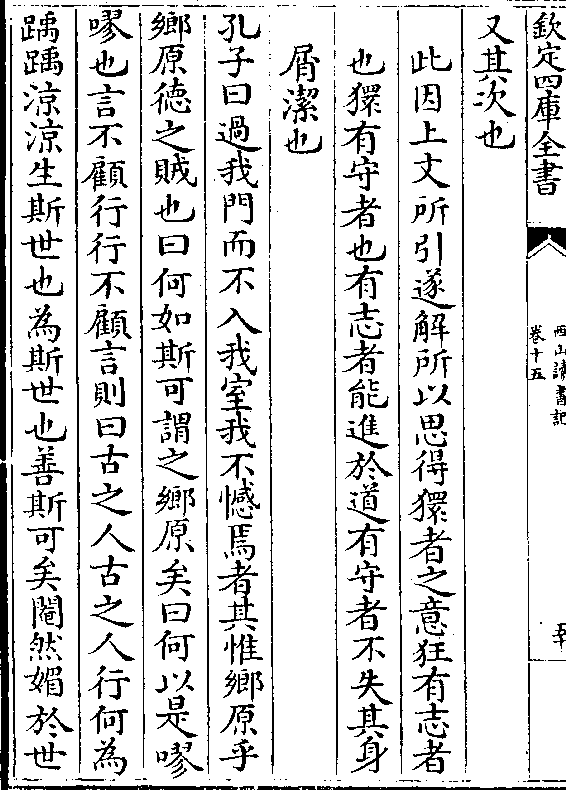 欽定四庫全書
西山讀書記
卷十五
五十
又其次也
此因上文所引遂解所以思得獧者之意狂有志者
也獧有守者也有志者能進於道有守者不失其身
屑潔也
孔子曰過我門而不入我室我不憾焉者其惟鄉原乎
鄉原德之賊也曰何如斯可謂之鄉原矣曰何以是嘐
嘐也言不顧行行不顧言則曰古之人古之人行何為
踽踽涼涼生斯世也為斯世也善斯可矣閹然媚於世